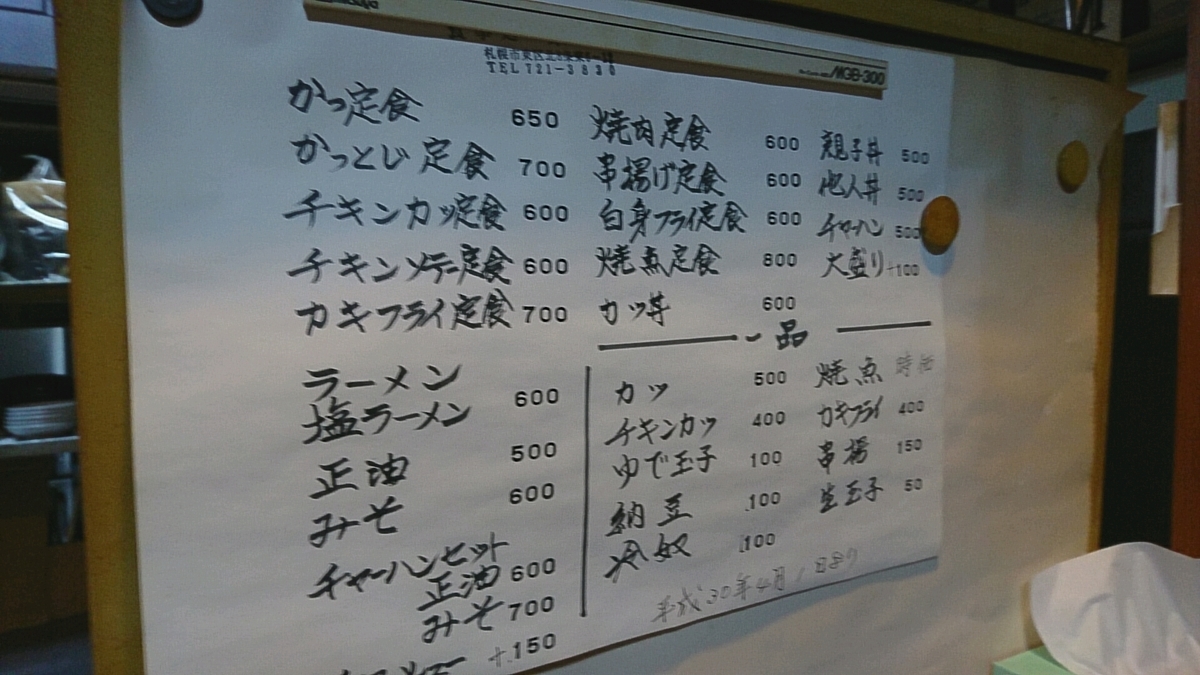 MGB-300
TEL 721-3830
かつ定食 650
かつとじ定食 700
チキンカツ定食 600
チキンソテー定食 600
カキフライ定食 700
焼肉定食 600
串揚げ定食 600
白身フライ定食 600
焼魚定食 600
カツ丼 600
親子丼 500
他人丼 500
チャーハン 500
大盛り +100
ラーメン
塩ラーメン 600
正油 500
みそ 600
チャーハンセット
正油 600
みそ 700
+150
一品
カツ 500
チキンカツ 400
ゆで玉子 100
納豆 100
冷奴 100
焼魚 時価
カキフライ 400
串揚 150
生玉子 50
平成30年4月1日より